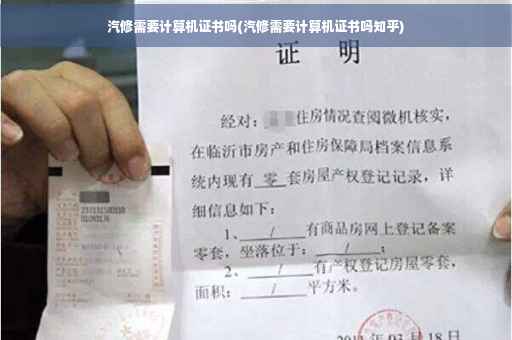 汽修需要计算机证书吗(汽修需要计算机证书吗知乎)
证 明
经对: 住房情况查阅微机核实,
在临沂市房产和住房保障局档案信息系
统内现有 零 套房屋产权登记记录,详
细信息如下:
1、 / 有商品房网上登记备案
零套,坐落位于: / ;
2、 / 有产权登记房屋零套,
面积: / 平方米。
03月18日